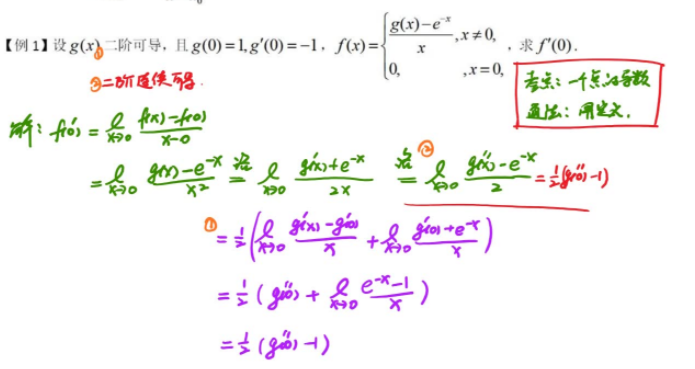 【例1】设g(x)①二阶可导，且g(0)=1,g′(0)=−1，f(x)={ (g(x)−e^{-x})/x ,x≠0, 0, ,x=0, ，求f′(0).
②二阶连续可导.
考点：一个点的导数
通法：用定义.
解：f′(0) = lim_{x→0} (f(x)−f(0))/(x−0)
= lim_{x→0} (g(x)−e^{-x})/x² 洛= lim_{x→0} (g′(x)+e^{-x})/2x 洛②= lim_{x→0} (g″(x)−e^{-x})/2 = 1/2(g″(0)−1)
① = 1/2( lim_{x→0} (g′(x)−g′(0))/x + lim_{x→0} (g′(0)+e^{-x})/x )
= 1/2( g″(0) + lim_{x→0} (e^{-x}−1)/x )
= 1/2( g″(0) −1)